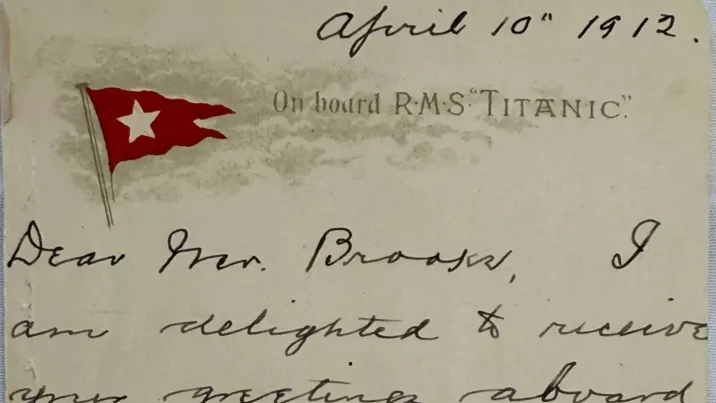 April 10" 1912.
On board R·M·S "TITANIC".
Dear Mr. Brooks, I
am delighted to receive
your greetings aboard